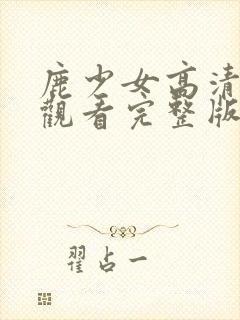 鹿少女高清
觀看完整版
翟占一